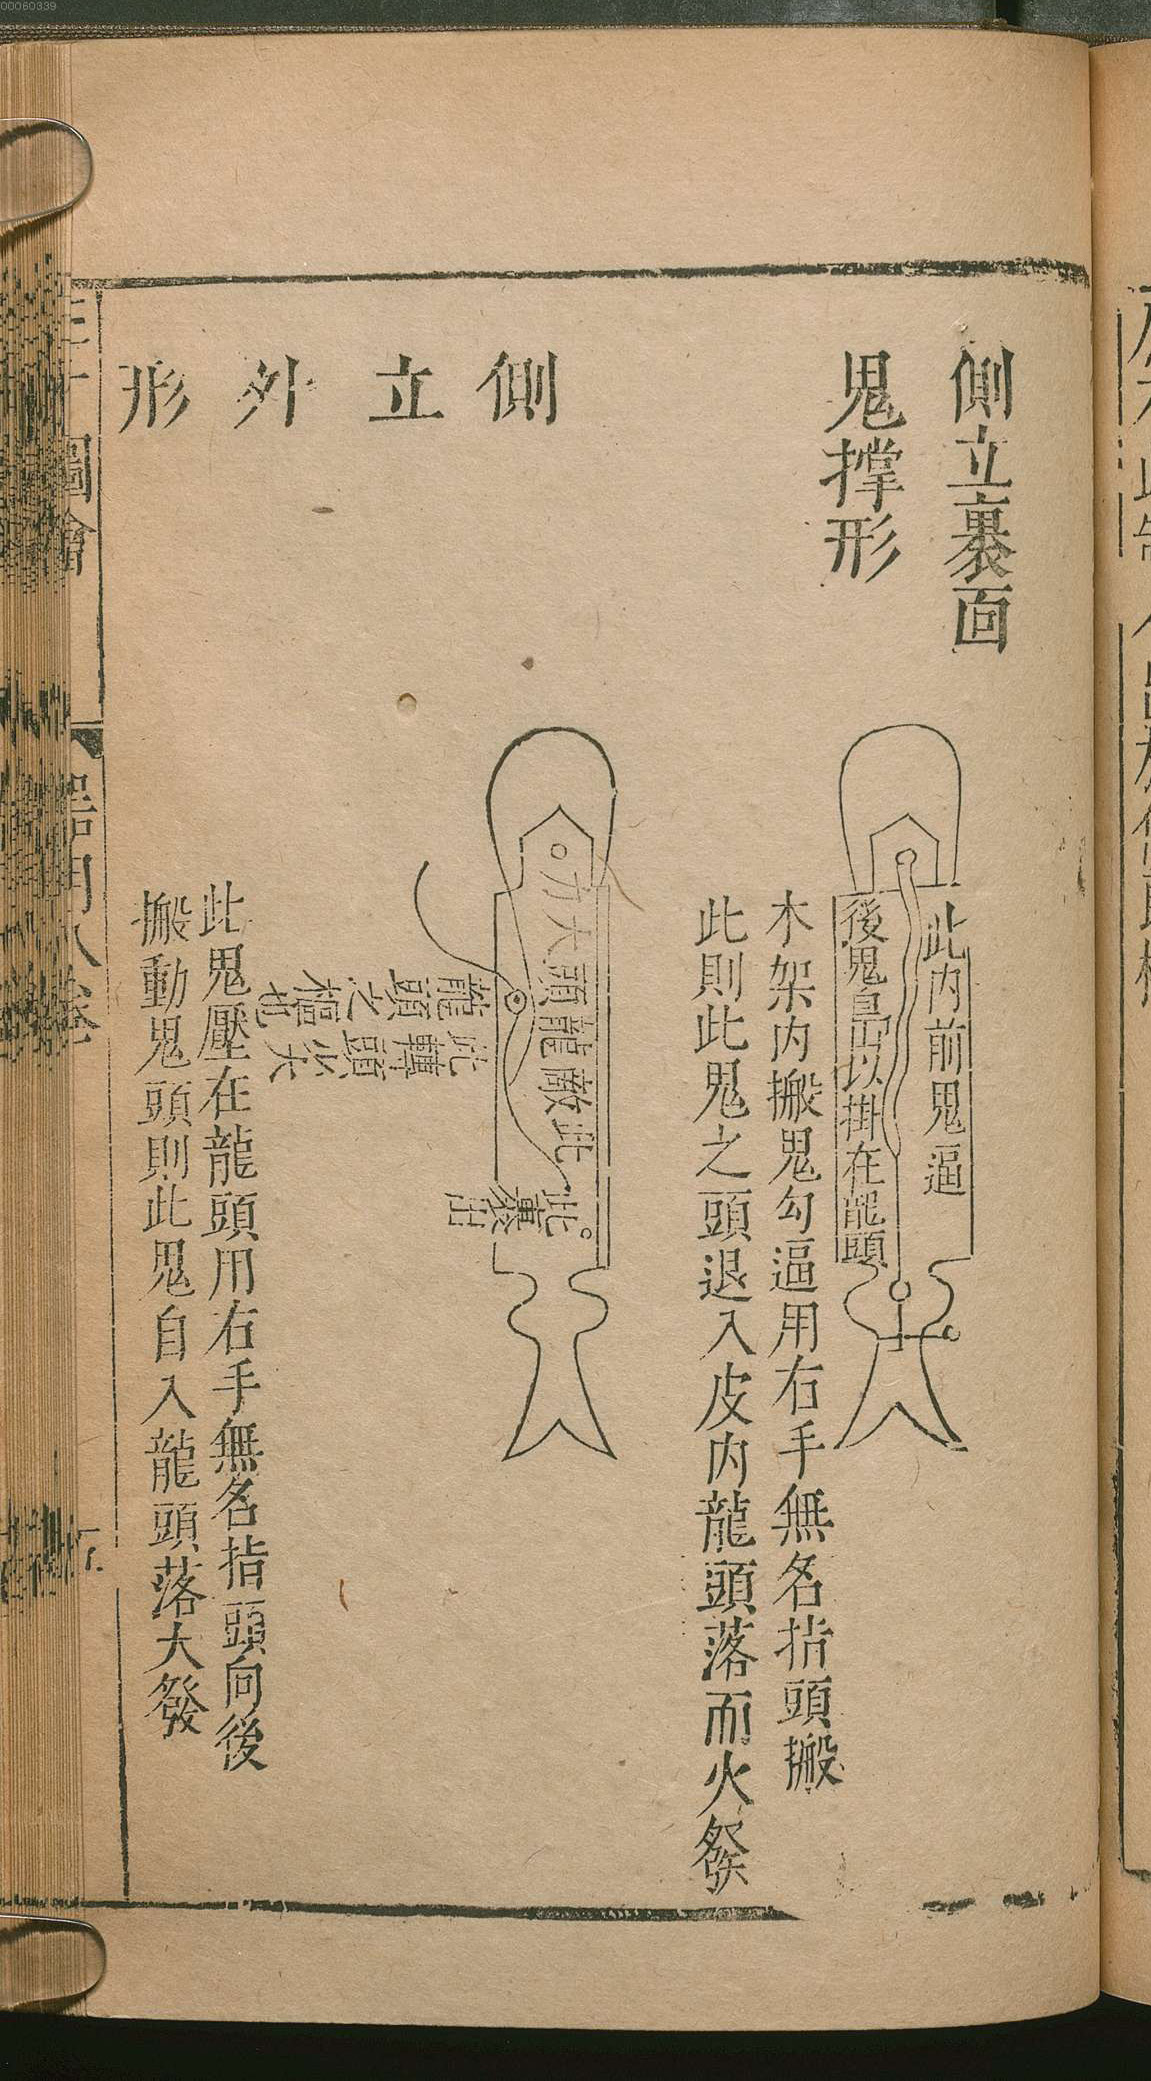 00060339
側立裏面
鬼撑形
此内前鬼逼
後鬼臯 以掛在龍頭
木架内搬鬼勾逼用右手無名指頭搬
此則此鬼之頭退入皮内龍頭落而火發
側立外形
此敵龍頭大方
此裏出
此轉頭尖
龍頭之樞也
此鬼壓在龍頭用右手無名指頭向後
搬動鬼頭則此鬼自入龍頭落大發
圖會
器用八卷